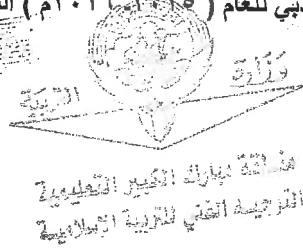 ديني للعام ( ٢٠١٥ - ٢٠١٦م )
وزارة
التربية
منطقة مبارك الكبير التعليمية
التوجيه الفني للتربية الإسلامية